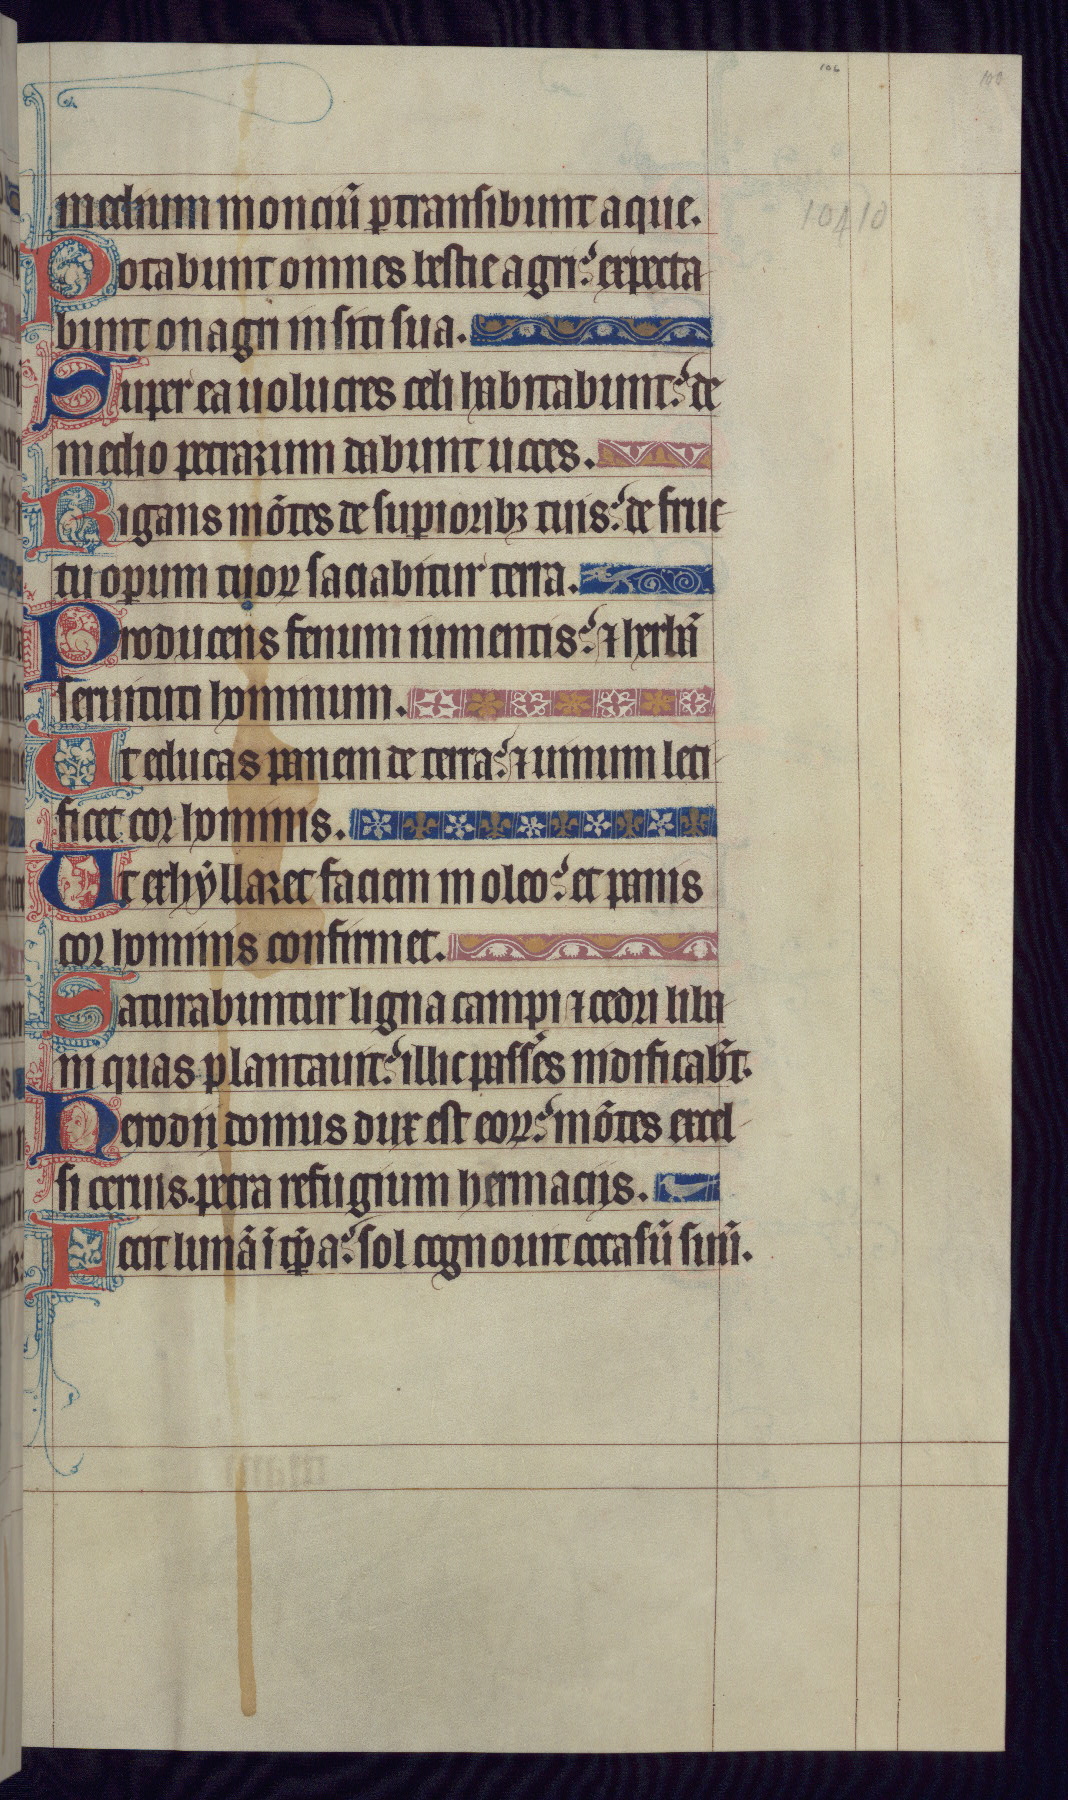 106
100
10410
medium monciū ꝑtransibunt aque.
Potabunt omnes bestie agri: expecta
bunt onagri in siti sua.
Super ea uolucres celi habitabunt: de
medio petrarum dabunt uoces.
Rigans mōtes de supioribꝫ tuis: de fruc
tu opum tuoꝝ saciabitur terra.
Producens fenum iumentis: ⁊ herbā
seruituti hominum.
Ut educas panem de terra: ⁊ uinum leti
ficet cor hominis.
Ut exhyllaret faciem in oleo: et panis
cor hominis confirmet.
Saturabuntur ligna campi ⁊ cedri liba
ni quas plantauit: illic passēs nidificabūt.
Herodii domus dux est eoꝝ: mōtes excel
si ceruis. petra refugium hermaciis.
Fecit lunā ī tp̄a: sol cognouit occasū suū.